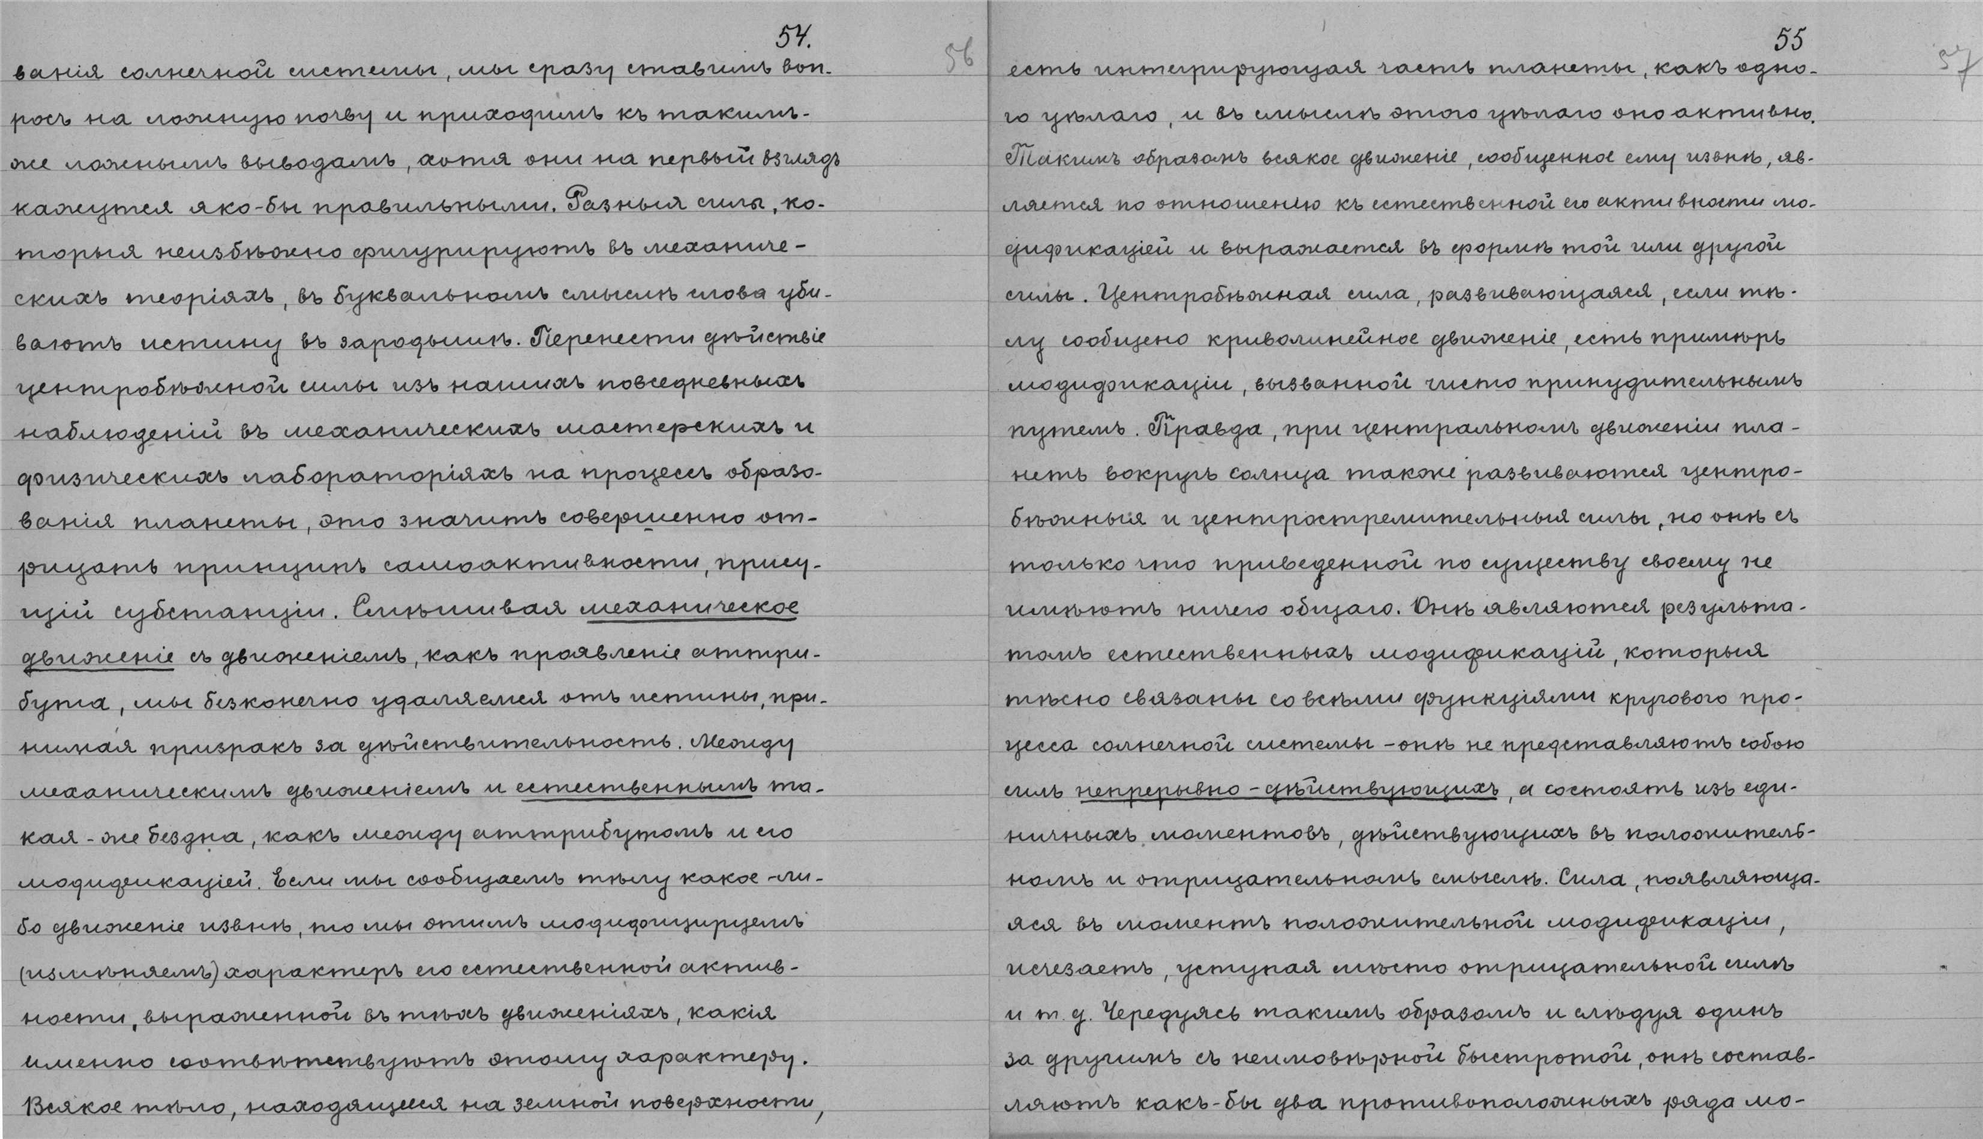 54.
56
ванія солнечной системы, мы сразу ставимъ воп-
росъ на ложную почву и приходимъ къ такимъ-
же ложнымъ выводамъ, хотя они на первый взглядъ
кажутся яко-бы правильными. Разныя силы, ко-
торыя неизбѣжно фигурируютъ въ механиче-
скихъ теоріяхъ, въ буквальномъ смыслѣ слова уби-
ваютъ истину въ зародышѣ. Перенести дѣйствіе
центробѣжной силы изъ нашихъ повседневныхъ
наблюденій въ механическихъ мастерскихъ и
физическихъ лабораторіяхъ на процессъ образо-
ванія планеты, это значитъ совершенно от-
рицать принципъ самоактивности, прису-
щій субстанціи. Смѣшивая механическое
движеніе съ движеніемъ, какъ проявленіе аттри-
бута, мы безконечно удаляемся отъ истины, при-
нимая призракъ за дѣйствительность. Между
механическимъ движеніемъ и естественнымъ та-
кая-же бездна, какъ между аттрибутомъ и его
модификаціей. Если мы сообщаемъ тѣлу какое-ли-
бо движеніе извнѣ, то мы этимъ модифицируемъ
(измѣняемъ) характеръ его естественной актив-
ности, выраженной въ тѣхъ движеніяхъ, какія
именно соотвѣтствуютъ этому характеру.
Всякое тѣло, находящееся на земной поверхности,
55
57
есть интегрирующая часть планеты, какъ одно-
го цѣлаго, и въ смыслѣ этого цѣлаго оно активно.
Такимъ образомъ всякое движеніе, сообщенное ему извнѣ, яв-
ляется по отношенію къ естественной его активности мо-
дификаціей и выражается въ формѣ той или другой
силы. Центробѣжная сила, развивающаяся, если тѣ-
лу сообщено криволинейное движеніе, есть примѣръ
модификаціи, вызванной чисто принудительнымъ
путемъ. Правда, при центральномъ движеніи пла-
нетъ вокругъ солнца также развиваются центро-
бѣжныя и центростремительныя силы, но онѣ съ
только что приведенной по существу своему не
имѣютъ ничего общаго. Онѣ являются результа-
томъ естественныхъ модификацій, которыя
тѣсно связаны со всѣми функціями кругового про-
цесса солнечной системы - онѣ не представляютъ собою
силъ непрерывно-дѣйствующихъ, а состоятъ изъ еди-
ничныхъ моментовъ, дѣйствующихъ въ положитель-
номъ и отрицательномъ смыслѣ. Сила, появляюща-
яся въ моментъ положительной модификаціи,
исчезаетъ, уступая мѣсто отрицательной силѣ
и т. д. Чередуясь такимъ образомъ и слѣдуя одинъ
за другимъ съ неимовѣрной быстротой, онѣ состав-
ляютъ какъ-бы два противоположныхъ ряда мо-